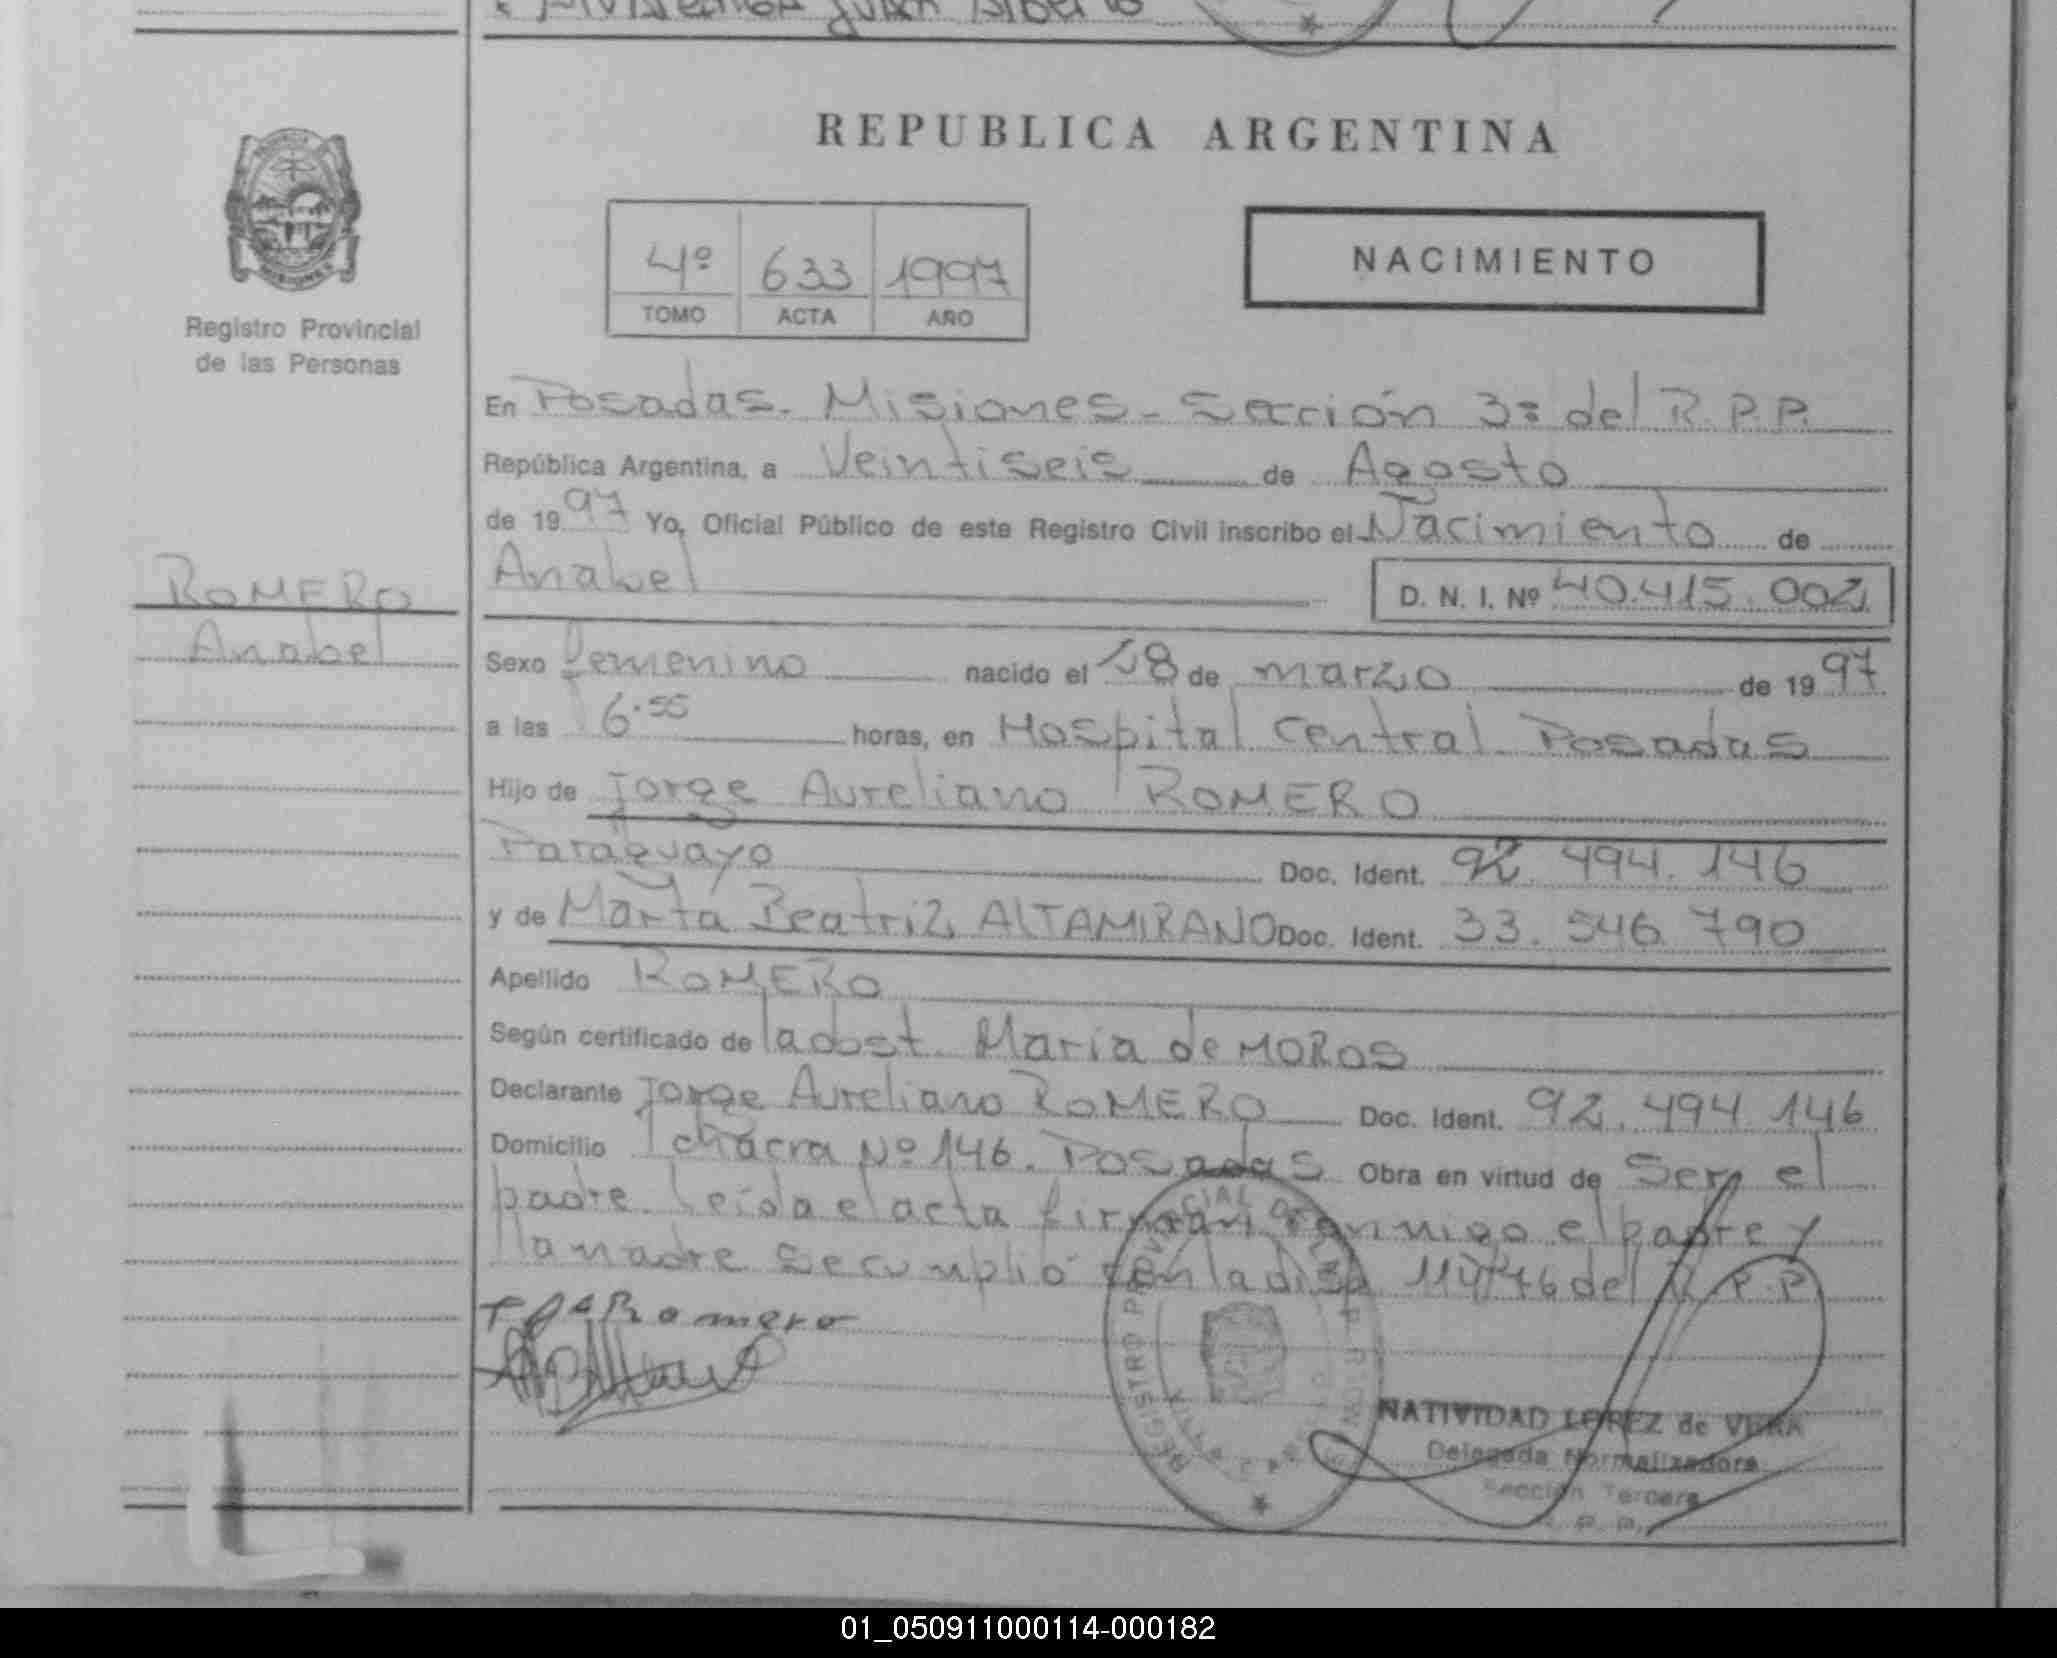 Juan Alberto
REPUBLICA ARGENTINA
MISIONES
Registro Provincial
de las Personas
4º 633 1997
TOMO ACTA AÑO
NACIMIENTO
En Posadas. Misiones - Sección 3ª del R.P.P.
República Argentina, a Veintiseis de Agosto
de 1997 Yo, Oficial Público de este Registro Civil inscribo el Nacimiento de
ROMERO
Anabel
Anabel D. N. I. Nº 40.415.002
Sexo femenino nacido el 18 de marzo de 1997
a las 6.55 horas, en Hospital Central Posadas
Hijo de Jorge Aureliano ROMERO
Paraguayo Doc. Ident. 92.494.146
y de Marta Beatriz ALTAMIRANO Doc. Ident. 33.546.790
Apellido ROMERO
Según certificado de la obst. Maria de MOROS
Declarante Jorge Aureliano ROMERO Doc. Ident. 92.494.146
Domicilio chacra Nº 146. Posadas Obra en virtud de Ser el
padre. Leída el acta firman conmigo el padre y
la madre se cumplió con la disp. 114/76 del R.P.P.
Romero
REGISTRO PROVINCIAL DE LAS PERSONAS
NATIVIDAD LOPEZ de VERA
Delegada Normalizadora
Sección Tercera
R. P. P.
01_050911000114-000182